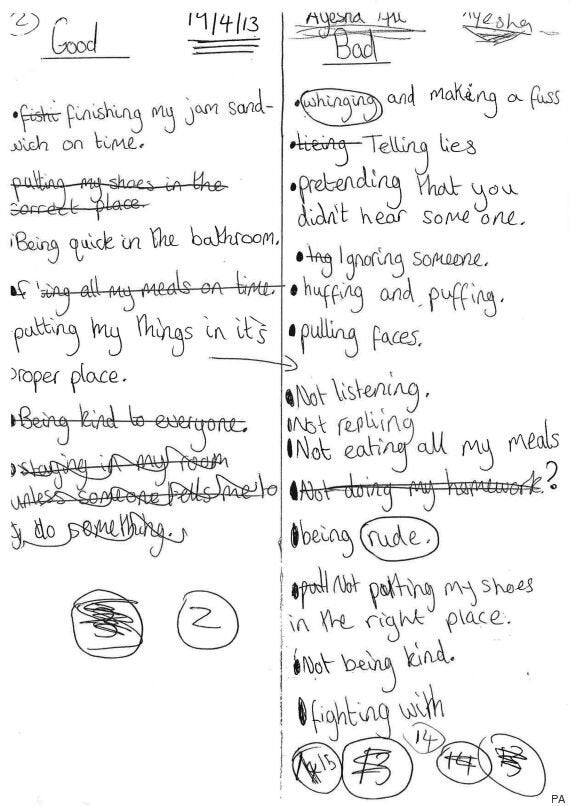 2)
Good
14/4/13
• fishi finishing my jam sand-
wich on time.
putting my shoes in the
correct place.
Being quick in the bathroom.
• f ing all my meals on time.
putting my things in it's
roper place.
• Being kind to everyone.
• staying in my room
unless someone tells me to
do something.
3
2
Ayesha Ali
Ayesha
Bad
• whinging and making a fuss
• lieing Telling lies
• pretending that you
didn't hear some one.
• Ing Ignoring someone.
• huffing and puffing.
• pulling faces.
• Not listening.
Not repliing
Not eating all my meals
• Not doing my homework.?
being rude.
• putt Not putting my shoes
in the right place.
• Not being kind.
fighting with
14
15
13
14
13
PA